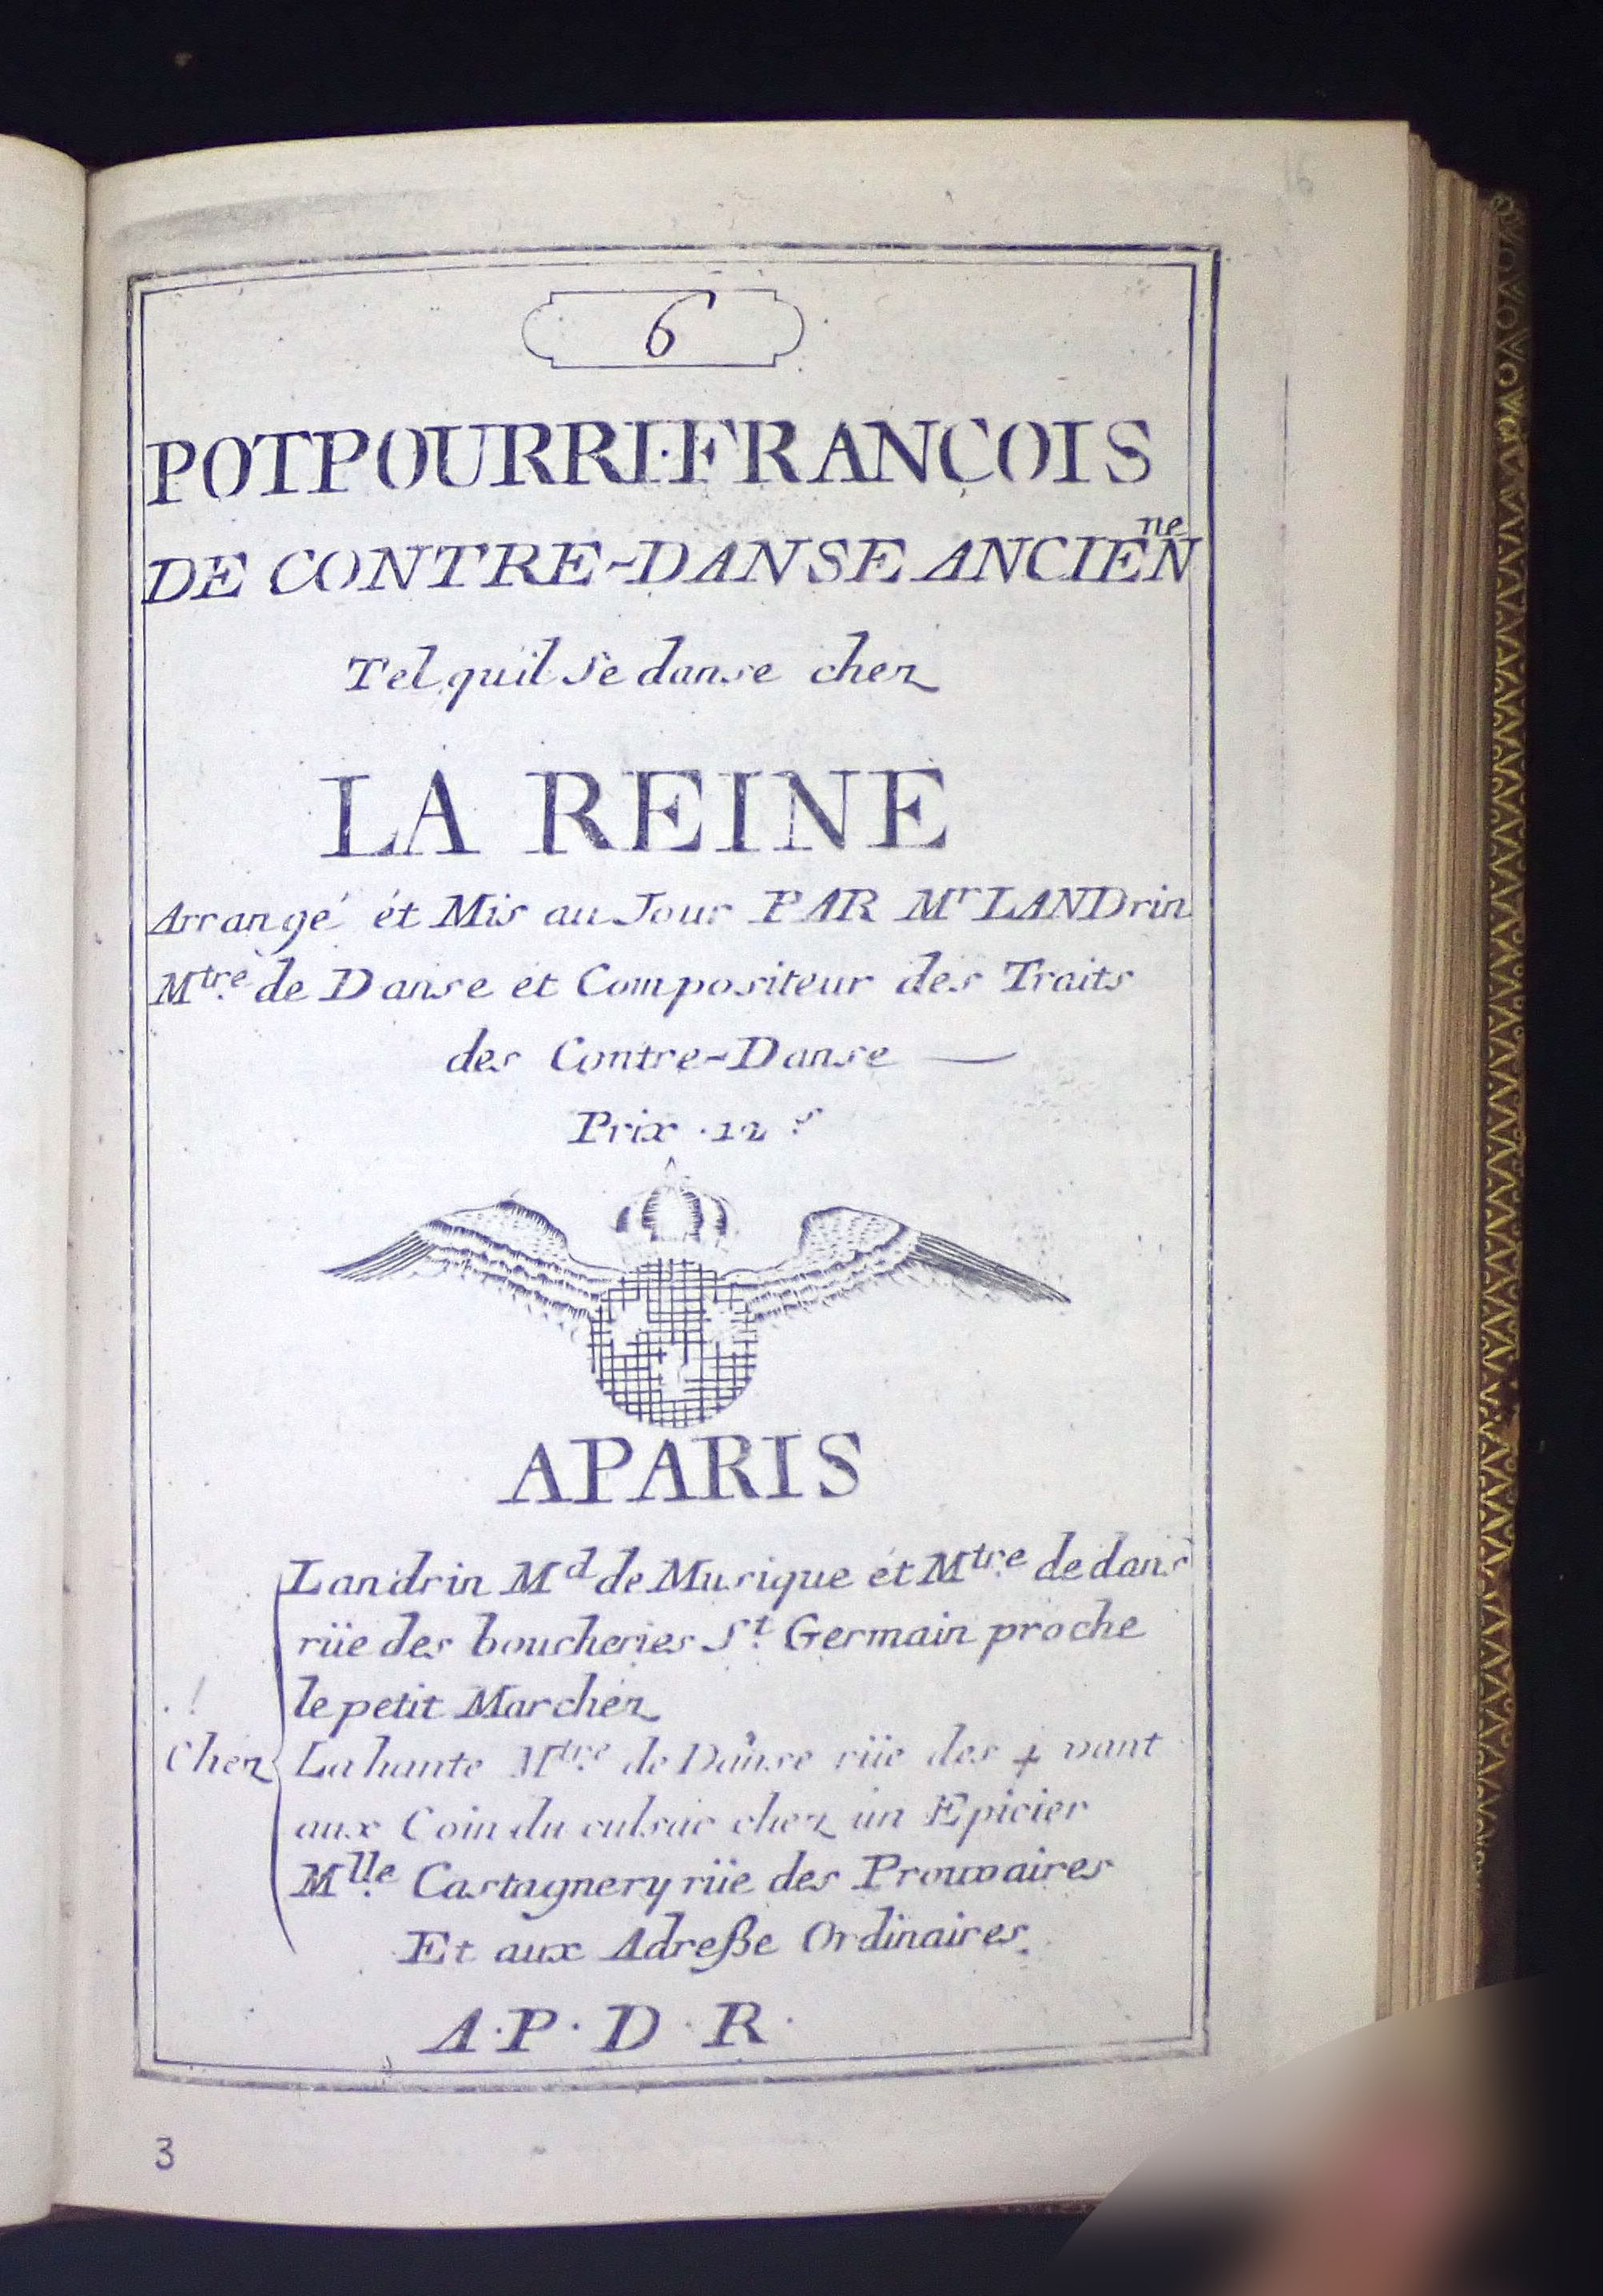 16
6
POTPOURRI·FRANÇOIS
DE CONTRE-DANSE ANCIENne
Tel quil Se danse chez
LA REINE
Arrangé ét Mis au Jour PAR Mr LANDrin
Mtre de Danse et Compositeur des Traits
des Contre-Danse —
Prix .12 s
APARIS
Landrin Md de Musique ét Mtre de dans
rüe des boucheries St Germain proche
le petit Marchéz
Chéz
Lahante Mtre de Danse rüe des + vant
aux Coin du culsac chez un Epicier
Mlle Castagnery rüe des Prouvaires
Et aux Adreße Ordinaires.
A·P·D·R·
3